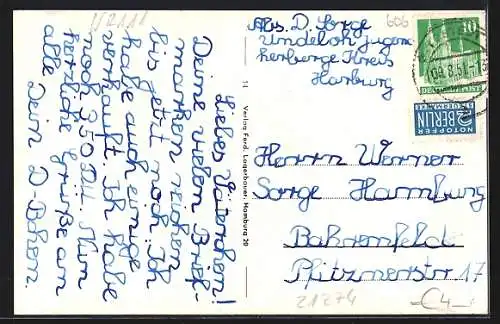 W2111
606
Abs. D. Sorge
Undeloh Jugend
herberge Kreis
Harburg
10
09.8.51
NOTOPFER
2 BERLIN
STEUERMARKE
Liebes Väterchen!
Deine vielen Brief-
marken reichen
bis jetzt noch. Ich
habe auch einige
verkauft. Ich habe
noch 3,50 DM. Nun
herzliche Grüße an
alle Dein D-Böhen.
14 Verlag Ferd. Lagerbauer, Hamburg 20
Herrn Werner
Sorge Hamburg
Bahrenfeld
Pfitznerstr 17
21274